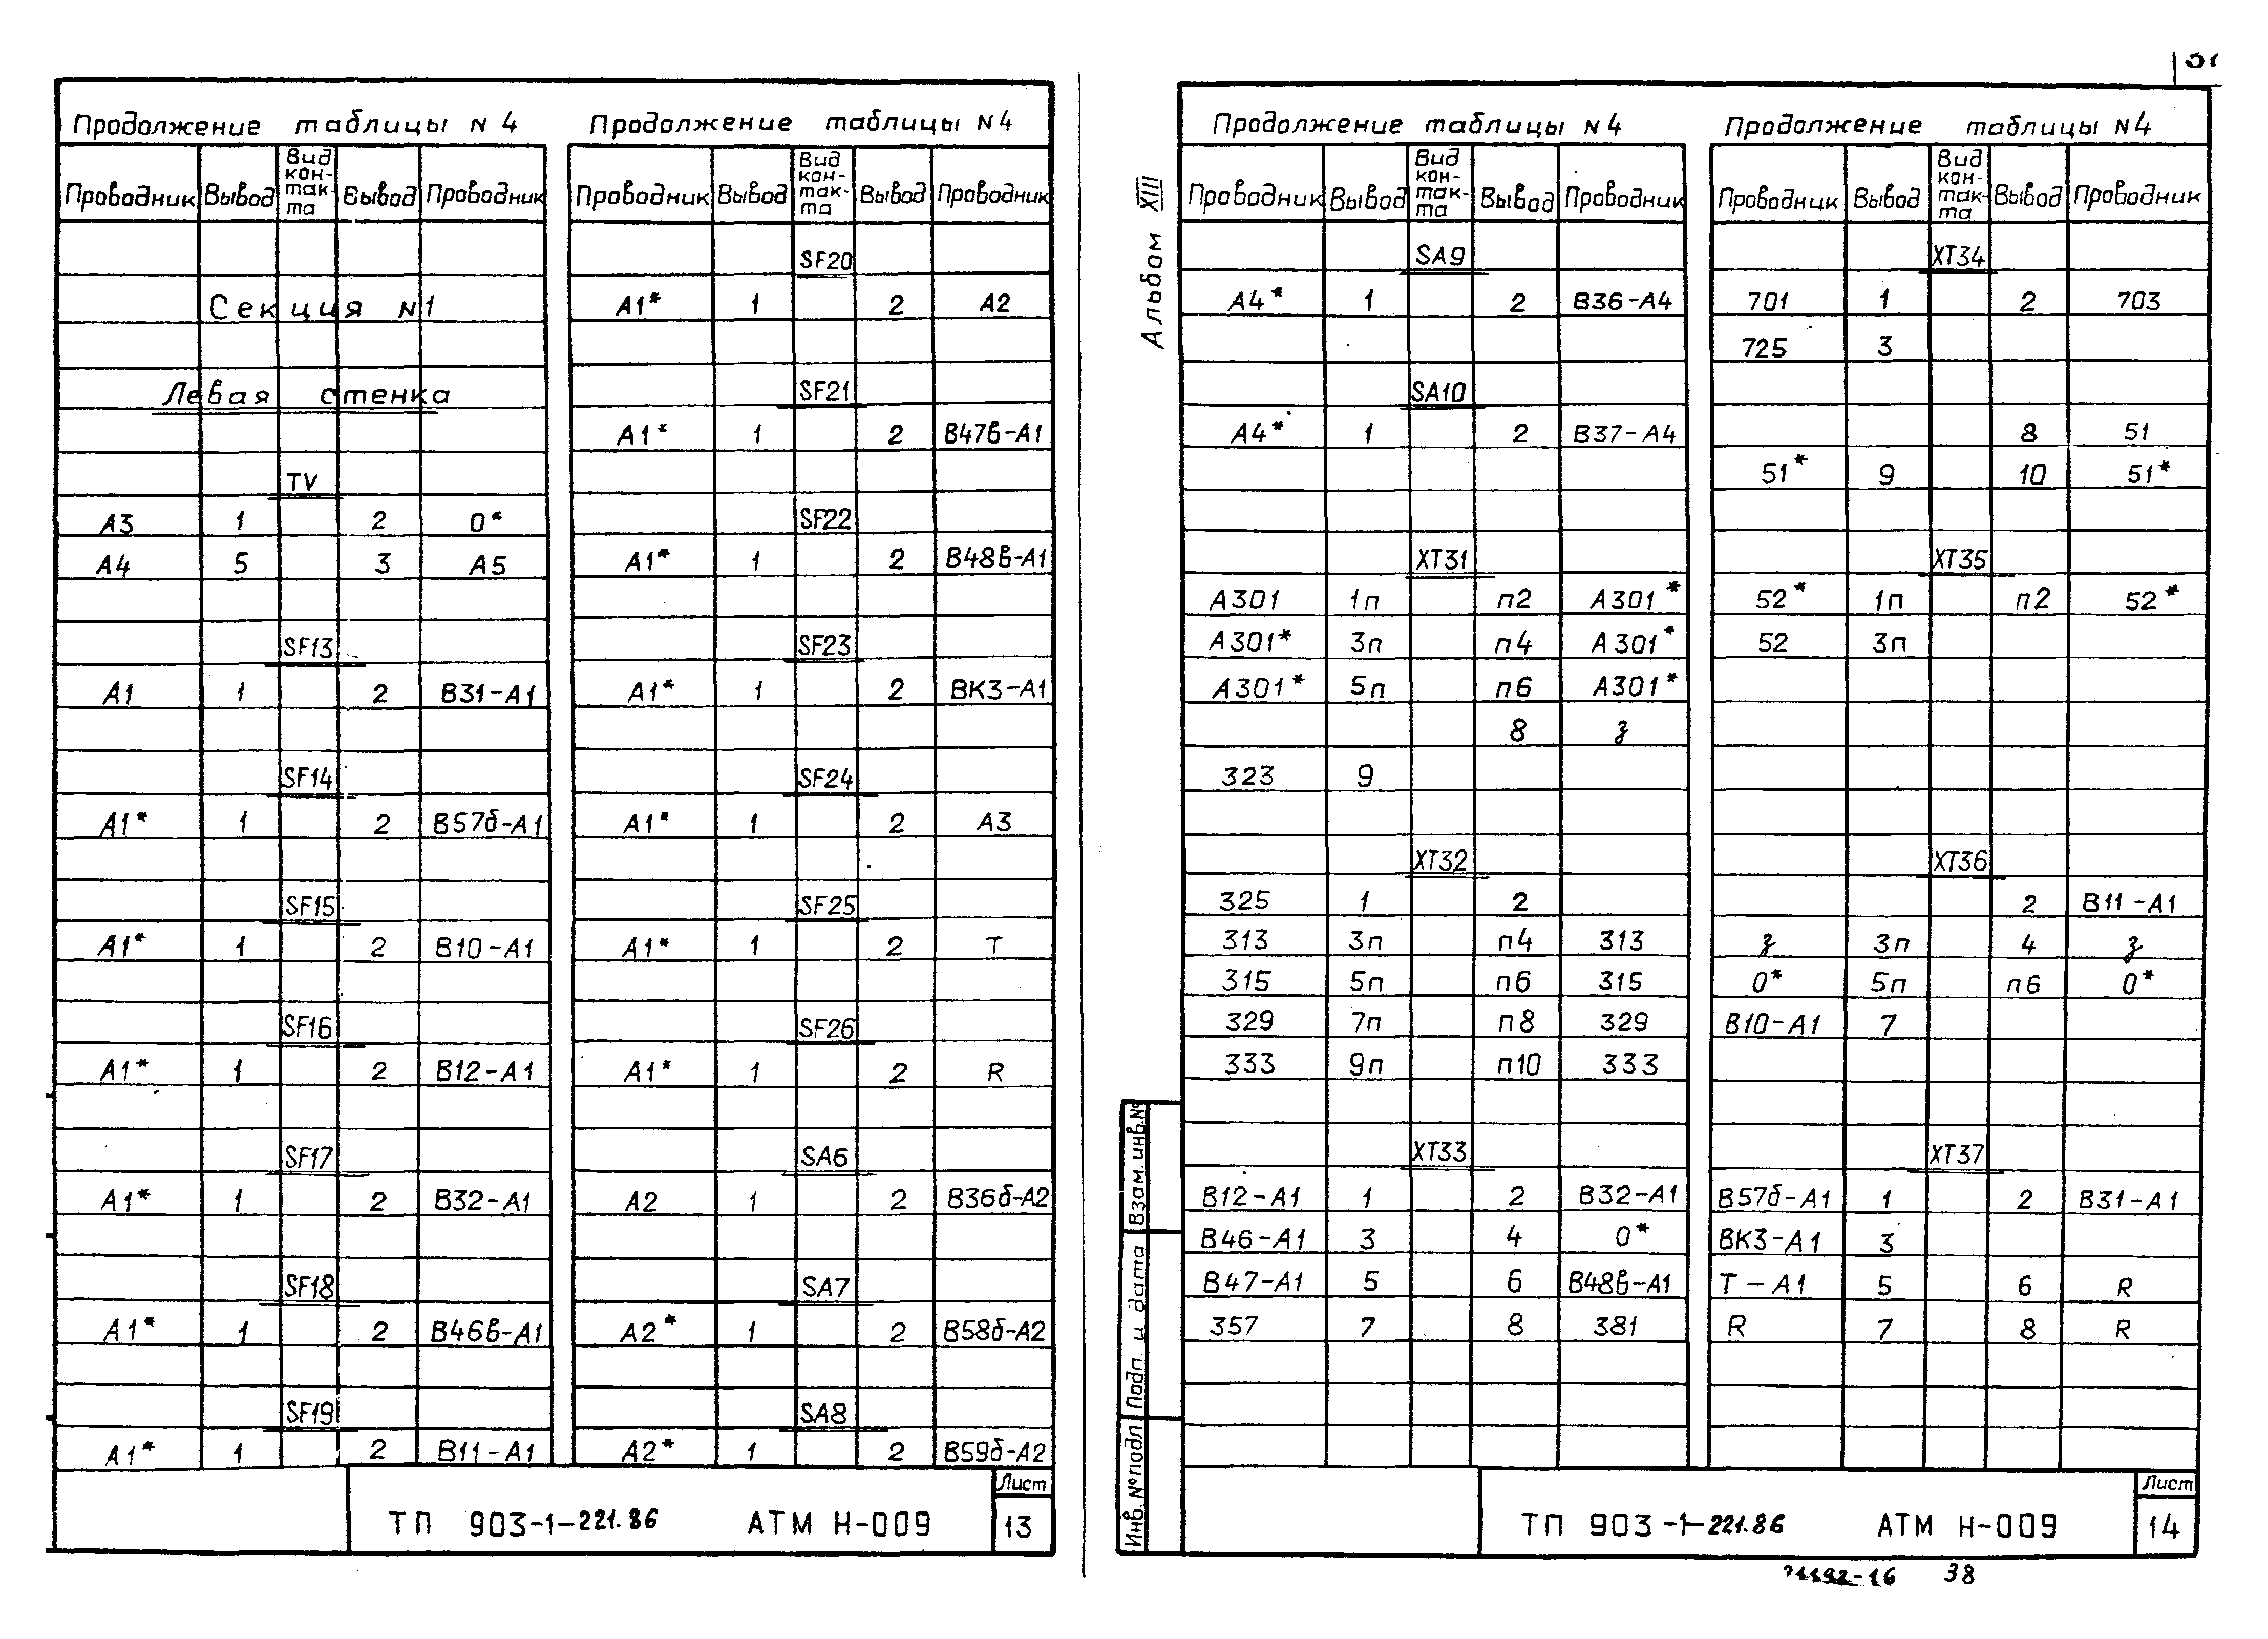 Продолжение таблицы N 4
Проводник Вывод Вид кон-так-та Вывод Проводник
Секция N1
Левая стенка
TV
А3 1 2 0*
А4 5 3 А5
SF13
А1 1 2 В31-А1
SF14
А1* 1 2 В57б-А1
SF15
А1* 1 2 В10-А1
SF16
А1* 1 2 В12-А1
SF17
А1* 1 2 В32-А1
SF18
А1* 1 2 В46в-А1
SF19
А1* 1 2 В11-А1
Продолжение таблицы N4
Проводник Вывод Вид кон-так-та Вывод Проводник
SF20
А1* 1 2 А2
SF21
А1* 1 2 В47в-А1
SF22
А1* 1 2 В48в-А1
SF23
А1* 1 2 ВК3-А1
SF24
А1* 1 2 А3
SF25
А1* 1 2 Т
SF26
А1* 1 2 R
SA6
А2 1 2 В36б-А2
SA7
А2* 1 2 В58б-А2
SA8
А2* 1 2 В59б-А2
ТП 903-1-221.86 АТМ Н-009
Лист
13
Альбом XIII
Продолжение таблицы N4
Проводник Вывод Вид кон-так-та Вывод Проводник
SA9
А4* 1 2 В36-А4
SA10
А4* 1 2 В37-А4
XT31
А301 1п п2 А301*
А301* 3п п4 А301*
А301* 5п п6 А301*
8 з
323 9
XT32
325 1 2
313 3п п4 313
315 5п п6 315
329 7п п8 329
333 9п п10 333
XT33
В12-А1 1 2 В32-А1
В46-А1 3 4 0*
В47-А1 5 6 В48в-А1
357 7 8 381
Продолжение таблицы N4
Проводник Вывод Вид кон-так-та Вывод Проводник
XT34
701 1 2 703
725 3
8 51
51* 9 10 51*
XT35
52* 1п п2 52*
52 3п
XT36
2 В11-А1
з 3п 4 з
0* 5п п6 0*
В10-А1 7
XT37
В57б-А1 1 2 В31-А1
ВК3-А1 3
Т-А1 5 6 R
R 7 8 R
Взам. инв. №
Подп. и дата
Инв. № подл
ТП 903-1-221.86 АТМ Н-009
Лист
14
38